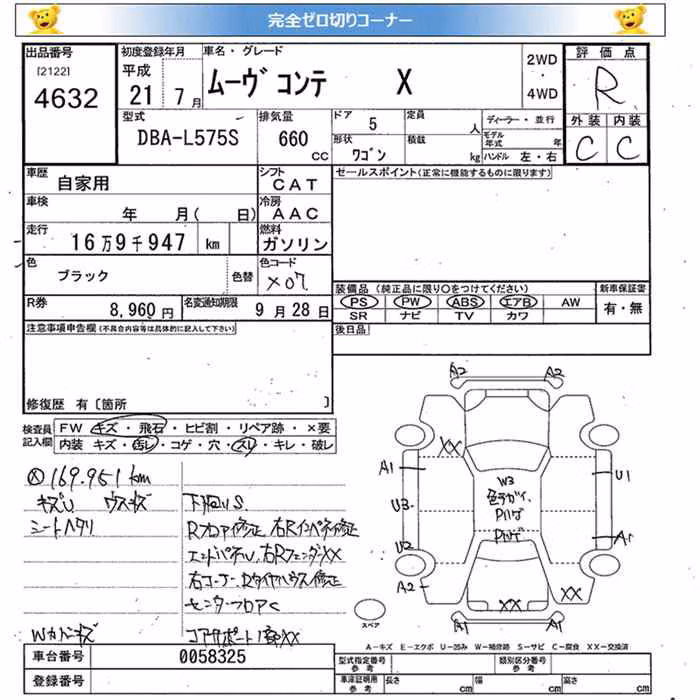 完全ゼロ切りコーナー
出品番号
[2122]
4632
初度登録年月
平成
21 7月
車名・グレード
ムーヴ コンテ X
2WD
・
4WD
評価点
R
外装 内装
C C
型式
DBA-L575S
排気量
660
CC
ドア
5
定員
人
形状
ワゴン
積載
kg
ディーラー・並行
モデル年式
年
ハンドル 左・右
車歴
自家用
シフト
CAT
車検
年 月( 日)
冷房
AAC
走行
16万9千947 km
燃料
ガソリン
色
ブラック
色替
色コード
X07
R券
8,960円
名変通知期限
9月28日
セールスポイント(正常に機能するものに限ります)
装備品 (純正品に限り○をつけてください)
PS PW ABS エアB AW
SR ナビ TV カワ
新車保証書
有・無
後日品
注意事項申告欄(不具合内容等は具体的に記入して下さい)
修復歴 有〔箇所 〕
検査員記入欄
FW キズ・飛石・ヒビ割・リペア跡・×要
内装 キズ・汚レ・コゲ・穴・スレ・キレ・破レ
169.951km
キズU ウスキズ
シートヘタリ
下回りS
Rフロア修正 右Rインパネ修正
エンドパネルU,右RフェンダーXX
右コーナー,Rタイヤハウス修正
センターフロアC
コアサポート1部XX
A2 A2
XX
A1
U3
U2
A2
U1
A1
W3
色ヂガイ,
XX
XX
A1 A1
スペア
A-キズ E-エクボ U-凹み W-補修跡 S-サビ C-腐食 XX-交換済
車台番号
0058325
登録番号
型式指定番号
参考
類別区分番号
参考
車庫証明用
参考
長さ cm
幅 cm
高さ cm